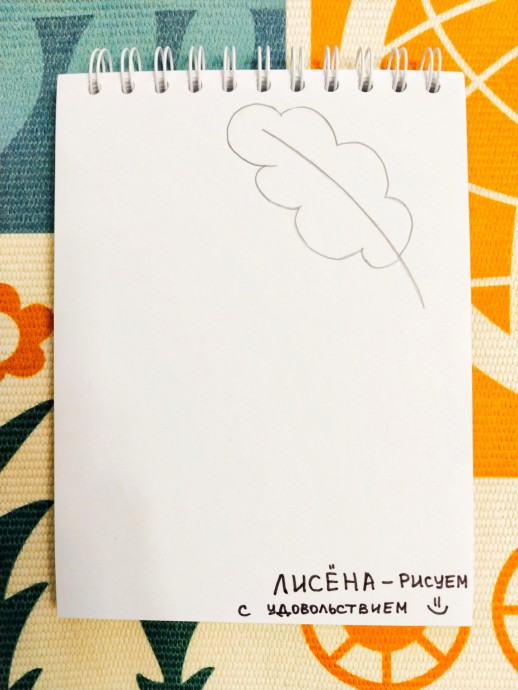 ЛИСЁНА – РИСУЕМ
С УДОВОЛЬСТВИЕМ